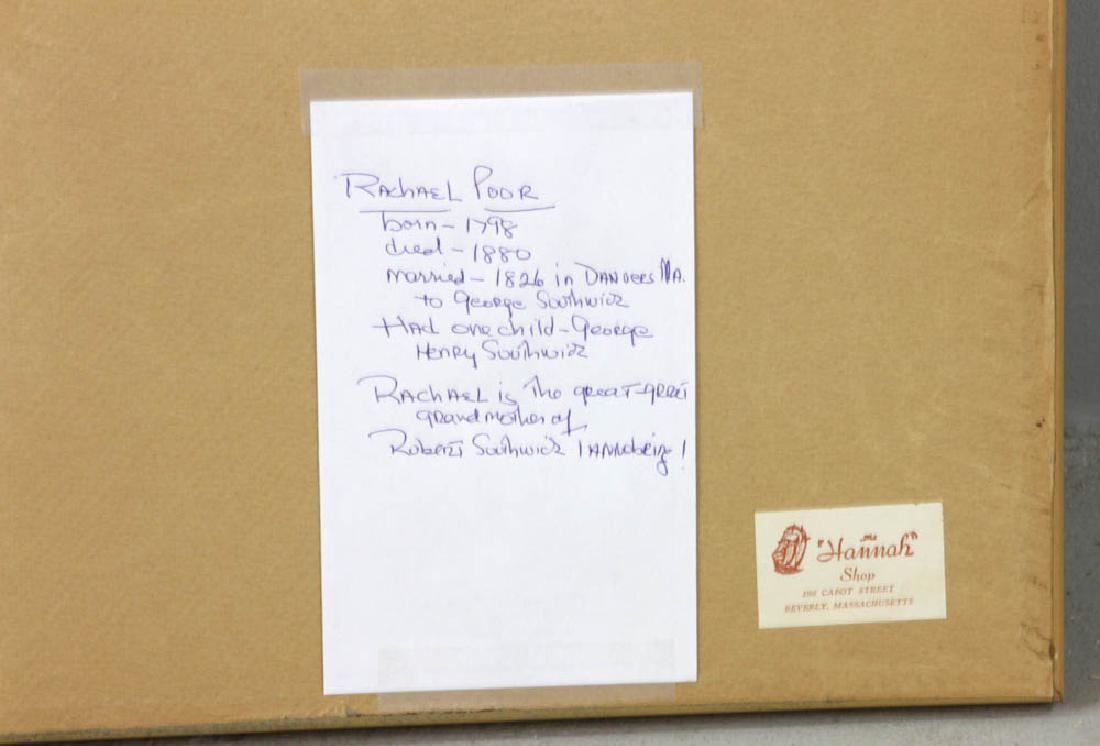 RACHAEL POOR
born - 1798
died - 1880
married - 1826 in DANVERS MA.
to George Southwick
Had one child - George
Henry Southwick
RACHAEL is The great-great
grandmother of
Robert Southwick !
the
"Hannah"
Shop
CABOT STREET
BEVERLY, MASSACHUSETTS